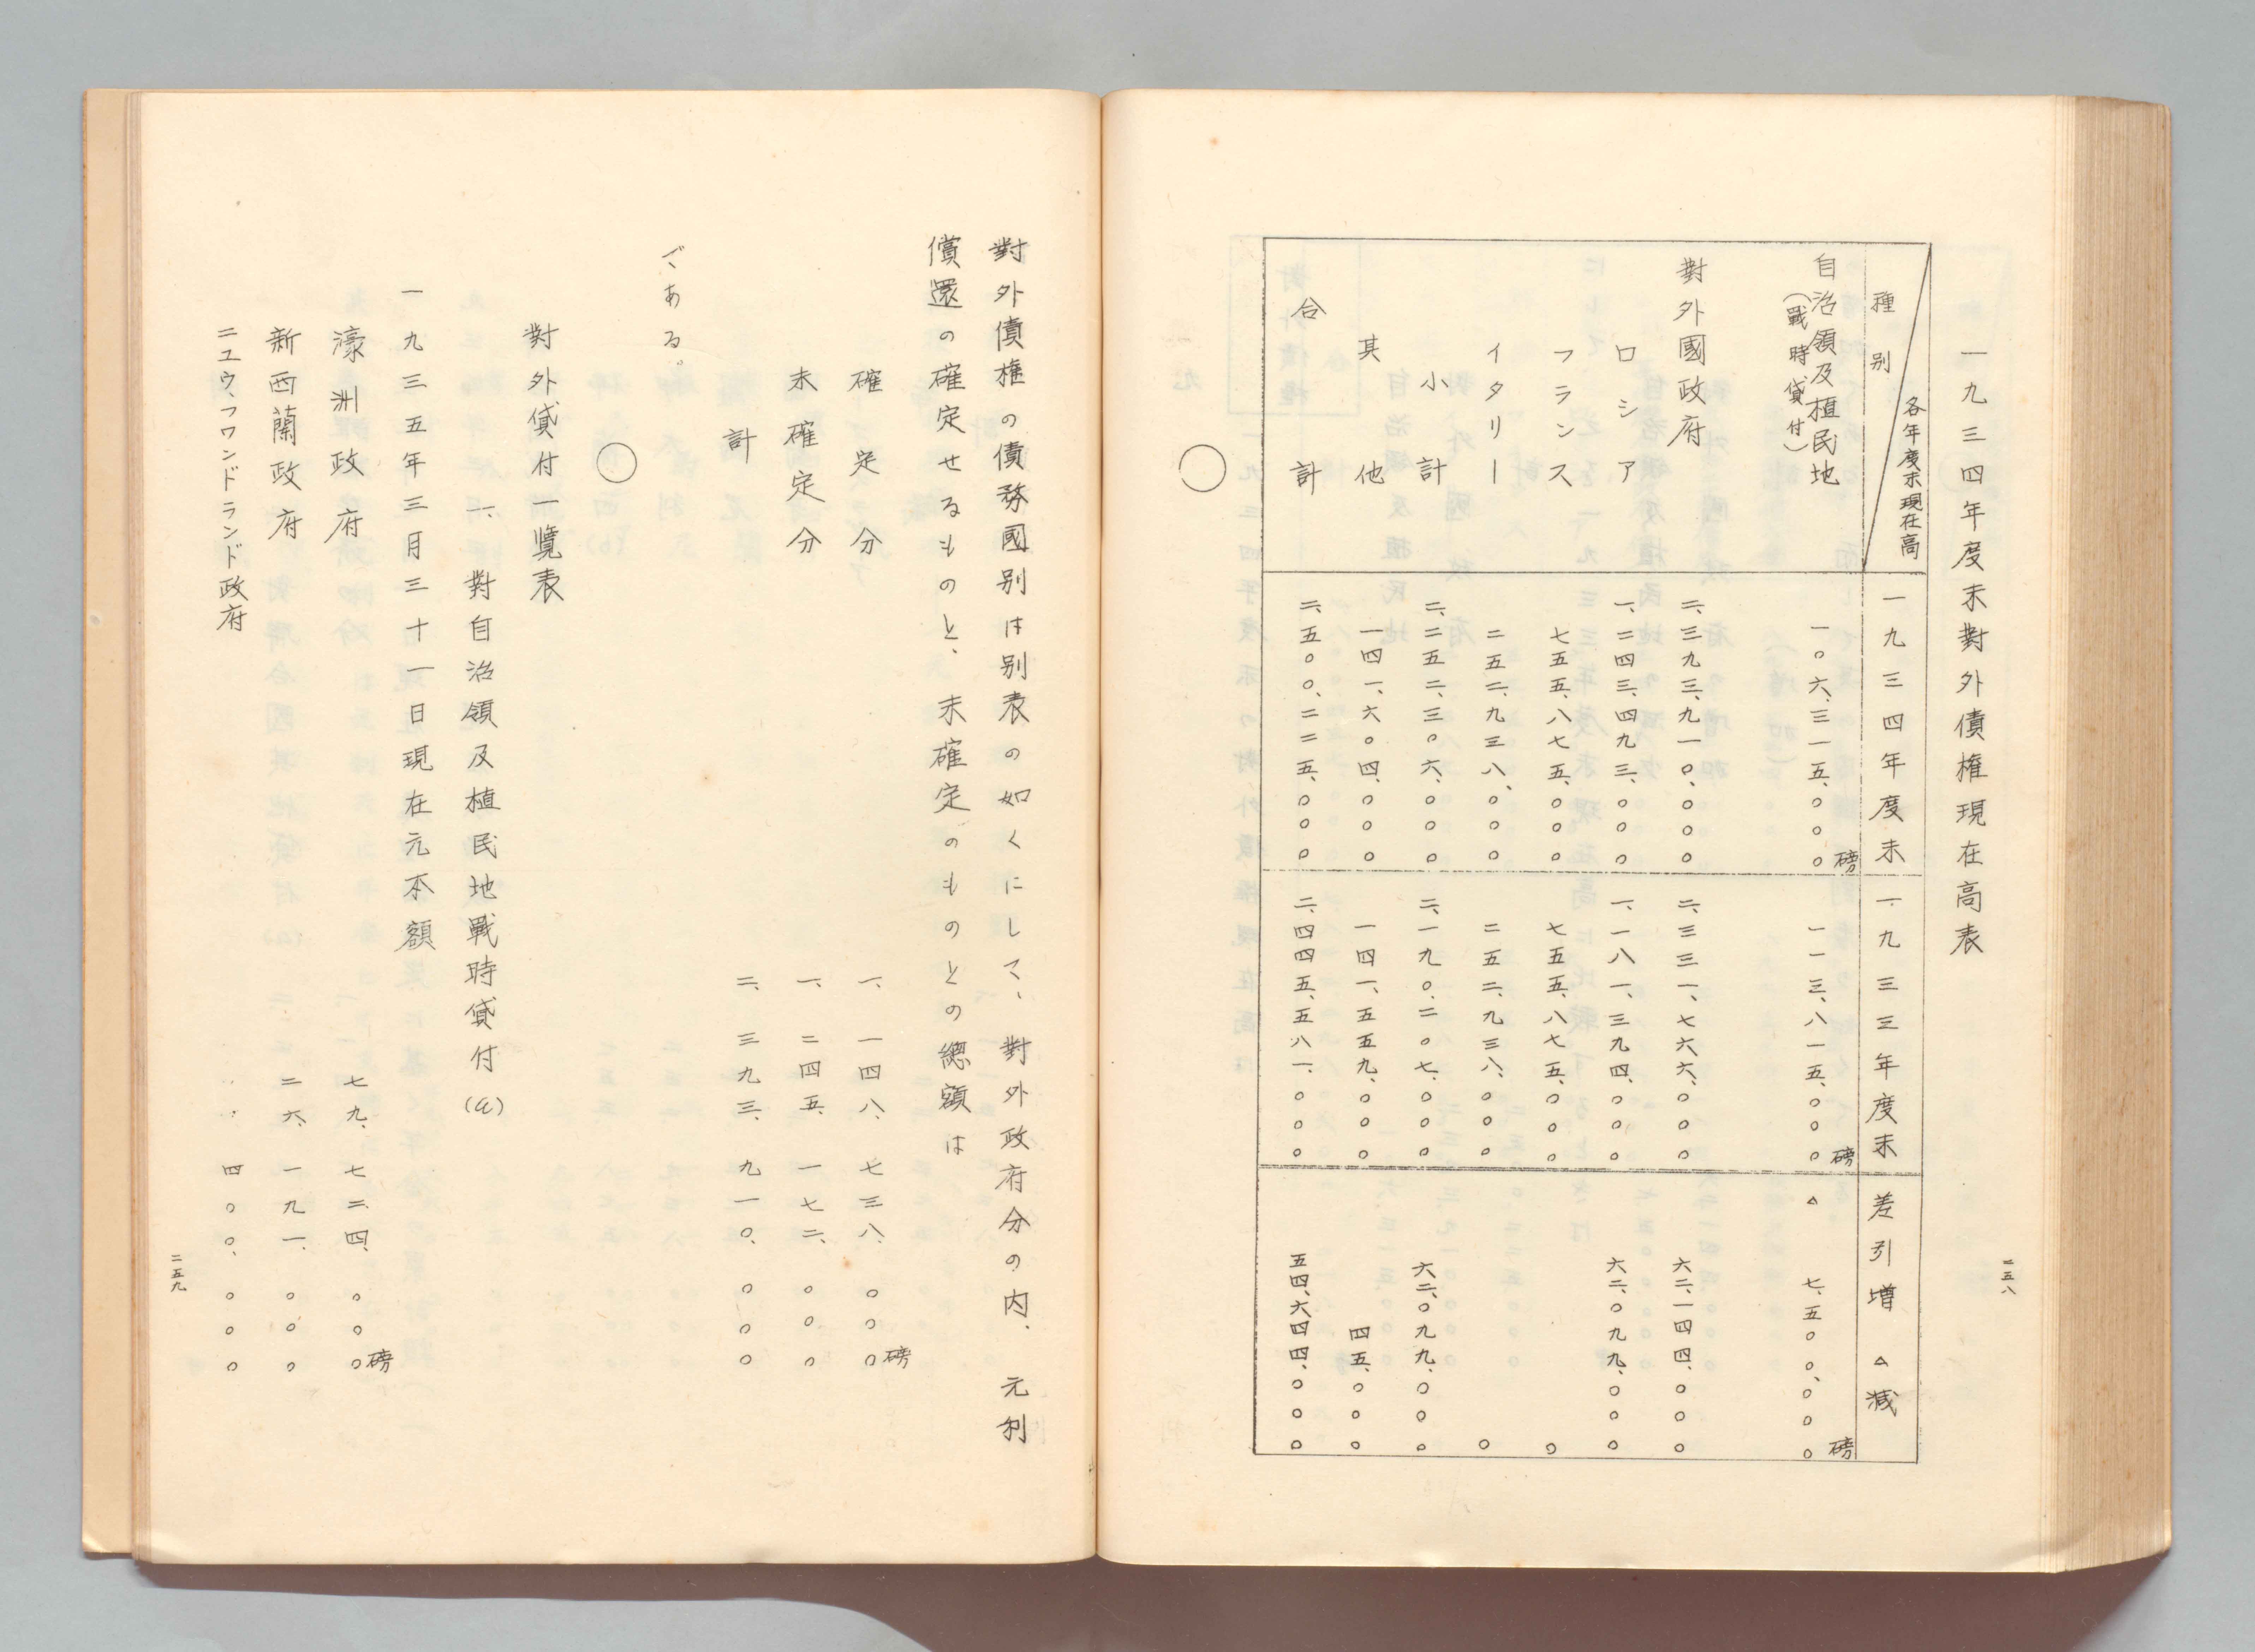 一九三四年度末對外債権現在高表
種別
各年度末現在高
一九三四年度末
一九三三年度末
差引増△減
自治領及植民地
(戰時貸付)
一〇六、三一五、〇〇〇磅
一一三、八一五、〇〇〇磅
△七、五〇〇、〇〇〇磅
對外國政府
二、三九三、九一〇、〇〇〇
二、三三一、七六六、〇〇〇
六二、一四四、〇〇〇
ロシア
一、二四三、四九三、〇〇〇
一、一八一、三九四、〇〇〇
六二、〇九九、〇〇〇
フランス
七五五、八七五、〇〇〇
七五五、八七五、〇〇〇
〇
イタリー
二五二、九三八、〇〇〇
二五二、九三八、〇〇〇
〇
小計
二、二五二、三〇六、〇〇〇
二、一九〇、二〇七、〇〇〇
六二、〇九九、〇〇〇
其他
一四一、六〇四、〇〇〇
一四一、五五九、〇〇〇
四五、〇〇〇
合計
二、五〇〇、二二五、〇〇〇
二、四四五、五八一、〇〇〇
五四、六四四、〇〇〇
〇
二五八
對外債権の債務國別は別表の如くにして、對外政府分の内、元利
償還の確定せるものと、未確定のものとの總額は
確定分 一、一四八、七三八、〇〇〇磅
未確定分 一、二四五、一七二、〇〇〇
計 二、三九三、九一〇、〇〇〇
である。
〇
對外貸付一覽表
一、對自治領及植民地戰時貸付(a)
一九三五年三月三十一日現在元本額
濠洲政府 七九、七二四、〇〇〇磅
新西蘭政府 二六、一九一、〇〇〇
ニユウ、フワンドランド政府 四〇〇、〇〇〇
二五九